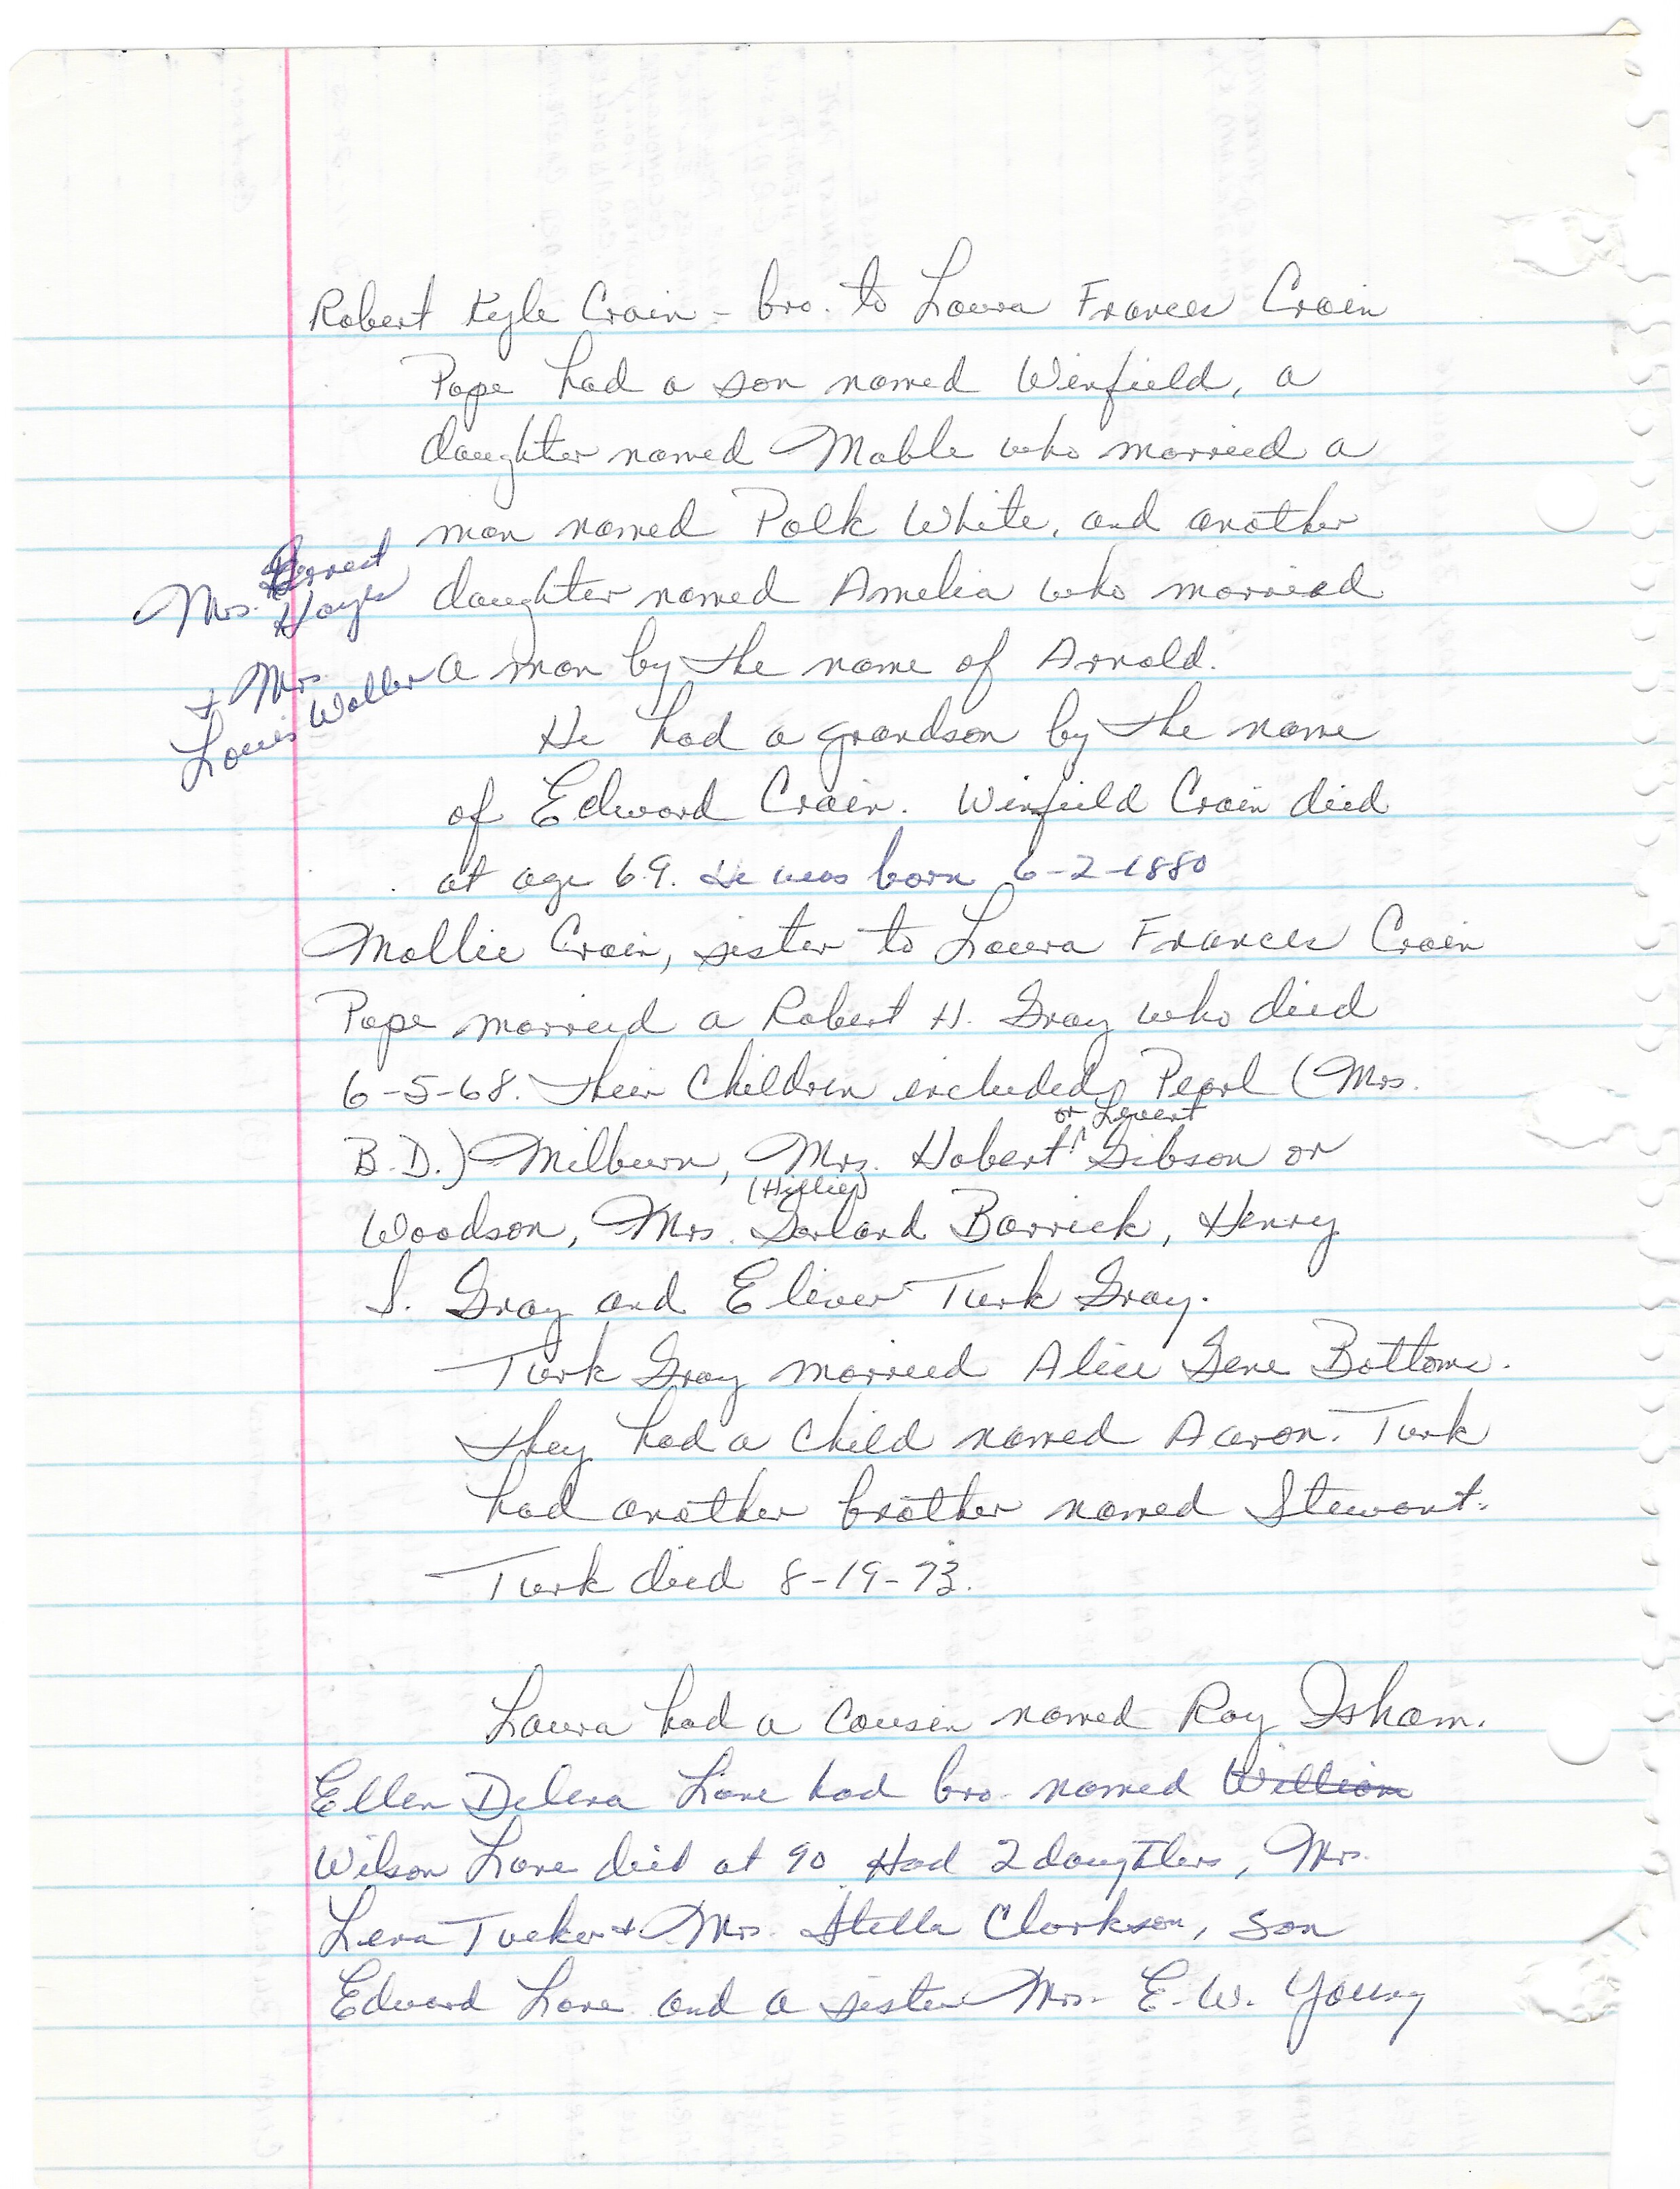 Robert Kyle Crain - bro. to Laura Frances Crain
Pope had a son named Winfield, a
daughter named Mable who married a
man named Polk White, and another
daughter named Amelia who married
a man by the name of Arnold.
Mrs.
Hayes
+ Mrs.
Louis Waller
He had a grandson by the name
of Edward Crain. Winfield Crain died
at age 69. He was born 6-2-1880
Mollie Crain, sister to Laura Frances Crain
Pope married a Robert H. Gray who died
6-5-68. Their children included, Pearl (Mrs.
or Levert
B.D.) Milburn, Mrs. Hobert ^ Gibson or
(Hillie)
Woodson, Mrs. Garland Barrick, Henry
S. Gray and Eliver Turk Gray.
Turk Gray married Alice Gene Bottoms.
They had a child named Aaron. Turk
had another brother named Stewart.
Turk died 8-19-73.
Laura had a cousin named Roy Isham.
Ellen Delena Lane had bro. named William
Wilson Lane died at 90. Had 2 daugtlers, Mrs.
Lena Tucker + Mrs. Stella Clarkson, son
Edward Lane and a sister Mrs. E.W. Young